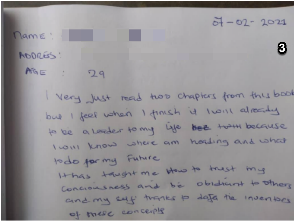 07-02-2021
Name:
3
ADDRES:
AGE : 29
I Very Just read two chapters from this book
but I feel when I finish it I will already
to be a leader to my life because
I will know where am heading and what
to do for my Future
It has taught me How to trust my
conciousness and be obidiant to others
and my self thanks to the inventors
of these concepts